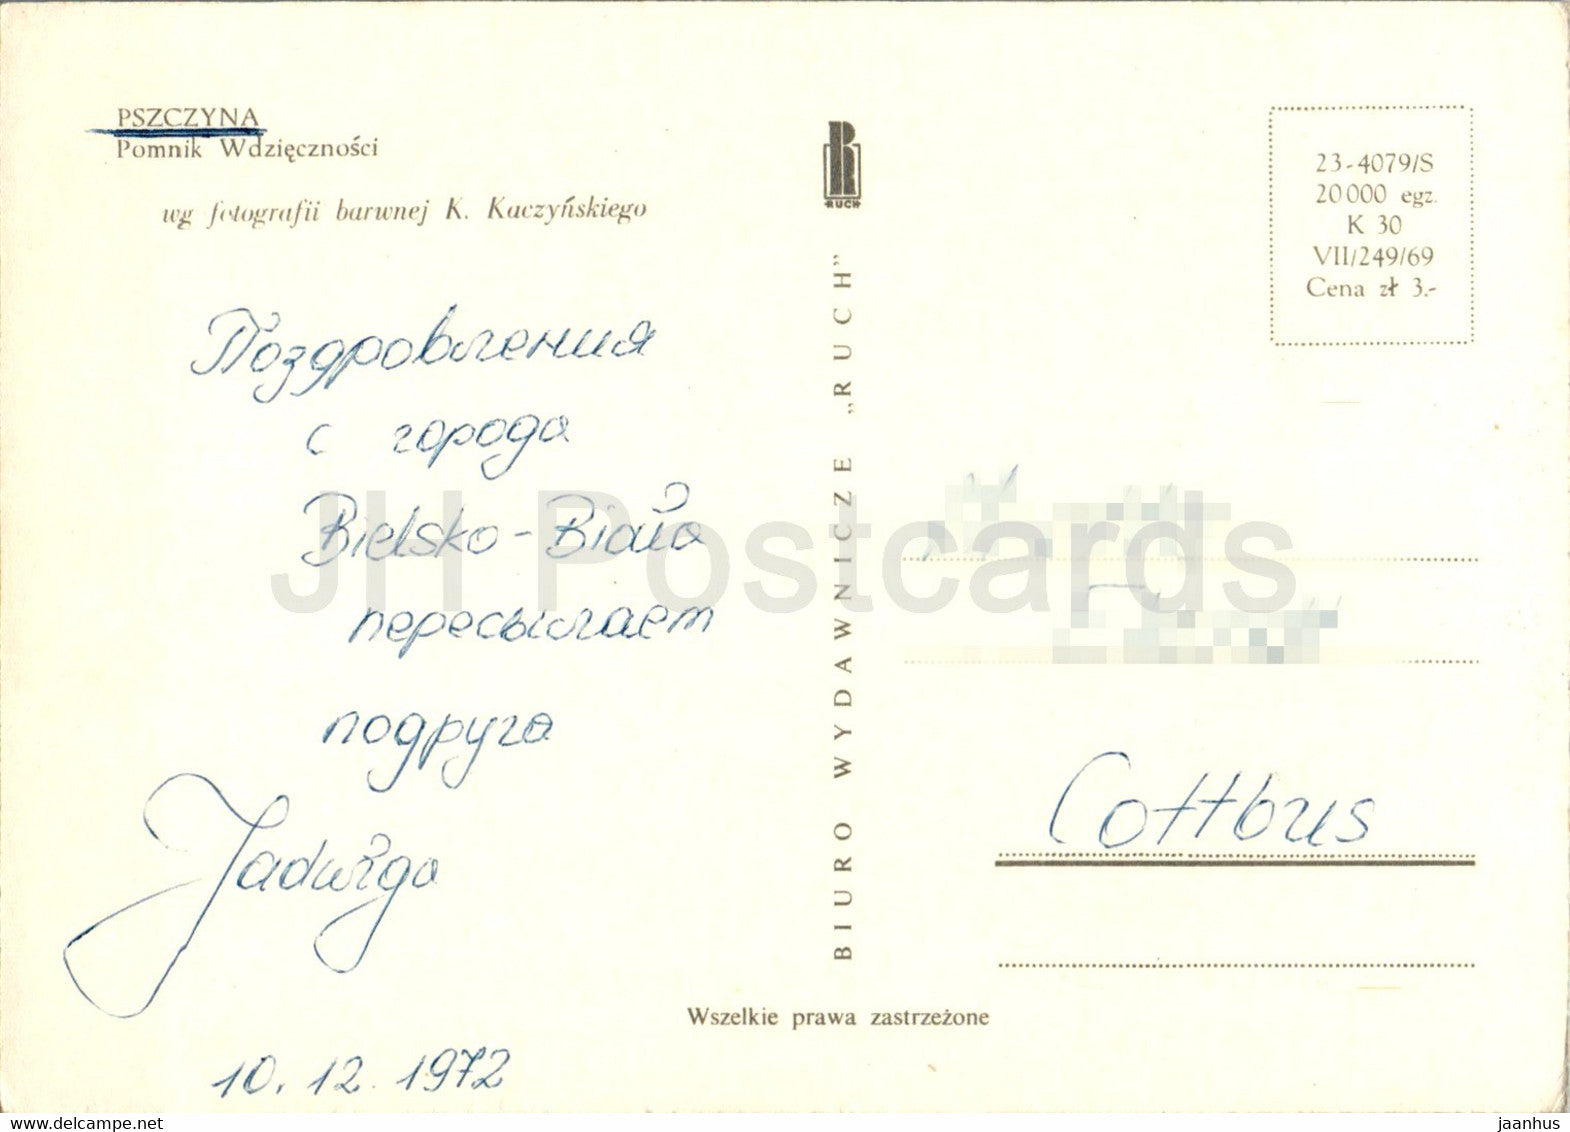 PSZCZYNA
Pomnik Wdzięczności
wg fotografii barwnej K. Kaczyńskiego
RUCH
23-4079/S
20 000 egz.
K 30
VII/249/69
Cena zł 3.-
Поздровления
с города
Bielsko-Biała
пересылаем
подруга
Jadwiga
10. 12. 1972
BIURO WYDAWNICZE „RUCH”
Cottbus
Wszelkie prawa zastrzeżone
JH Postcards
www.delcampe.net
jaanhus